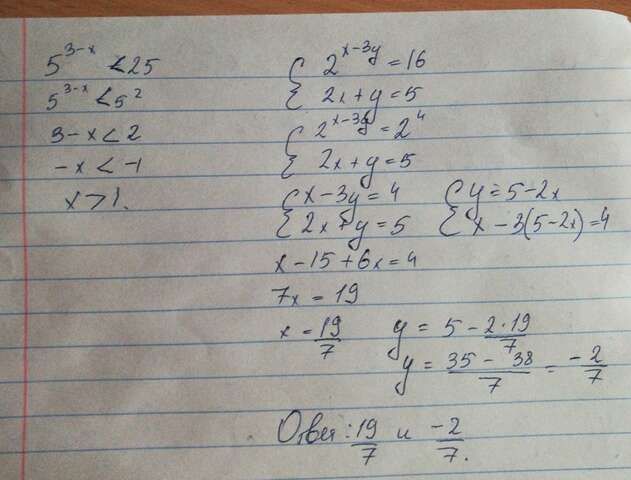 5^{3-x} < 25
5^{3-x} < 5^2
3-x < 2
-x < -1
x > 1.
{ 2^{x-3y} = 16
{ 2x+y = 5
{ 2^{x-3y} = 2^4
{ 2x+y = 5
{ x-3y = 4
{ 2x+y = 5
{ y = 5-2x
{ x-3(5-2x) = 4
x-15+6x = 4
7x = 19
x = 19/7
y = 5 - 2·19/7
y = 35-38/7 = -2/7
Ответ: 19/7 и -2/7.